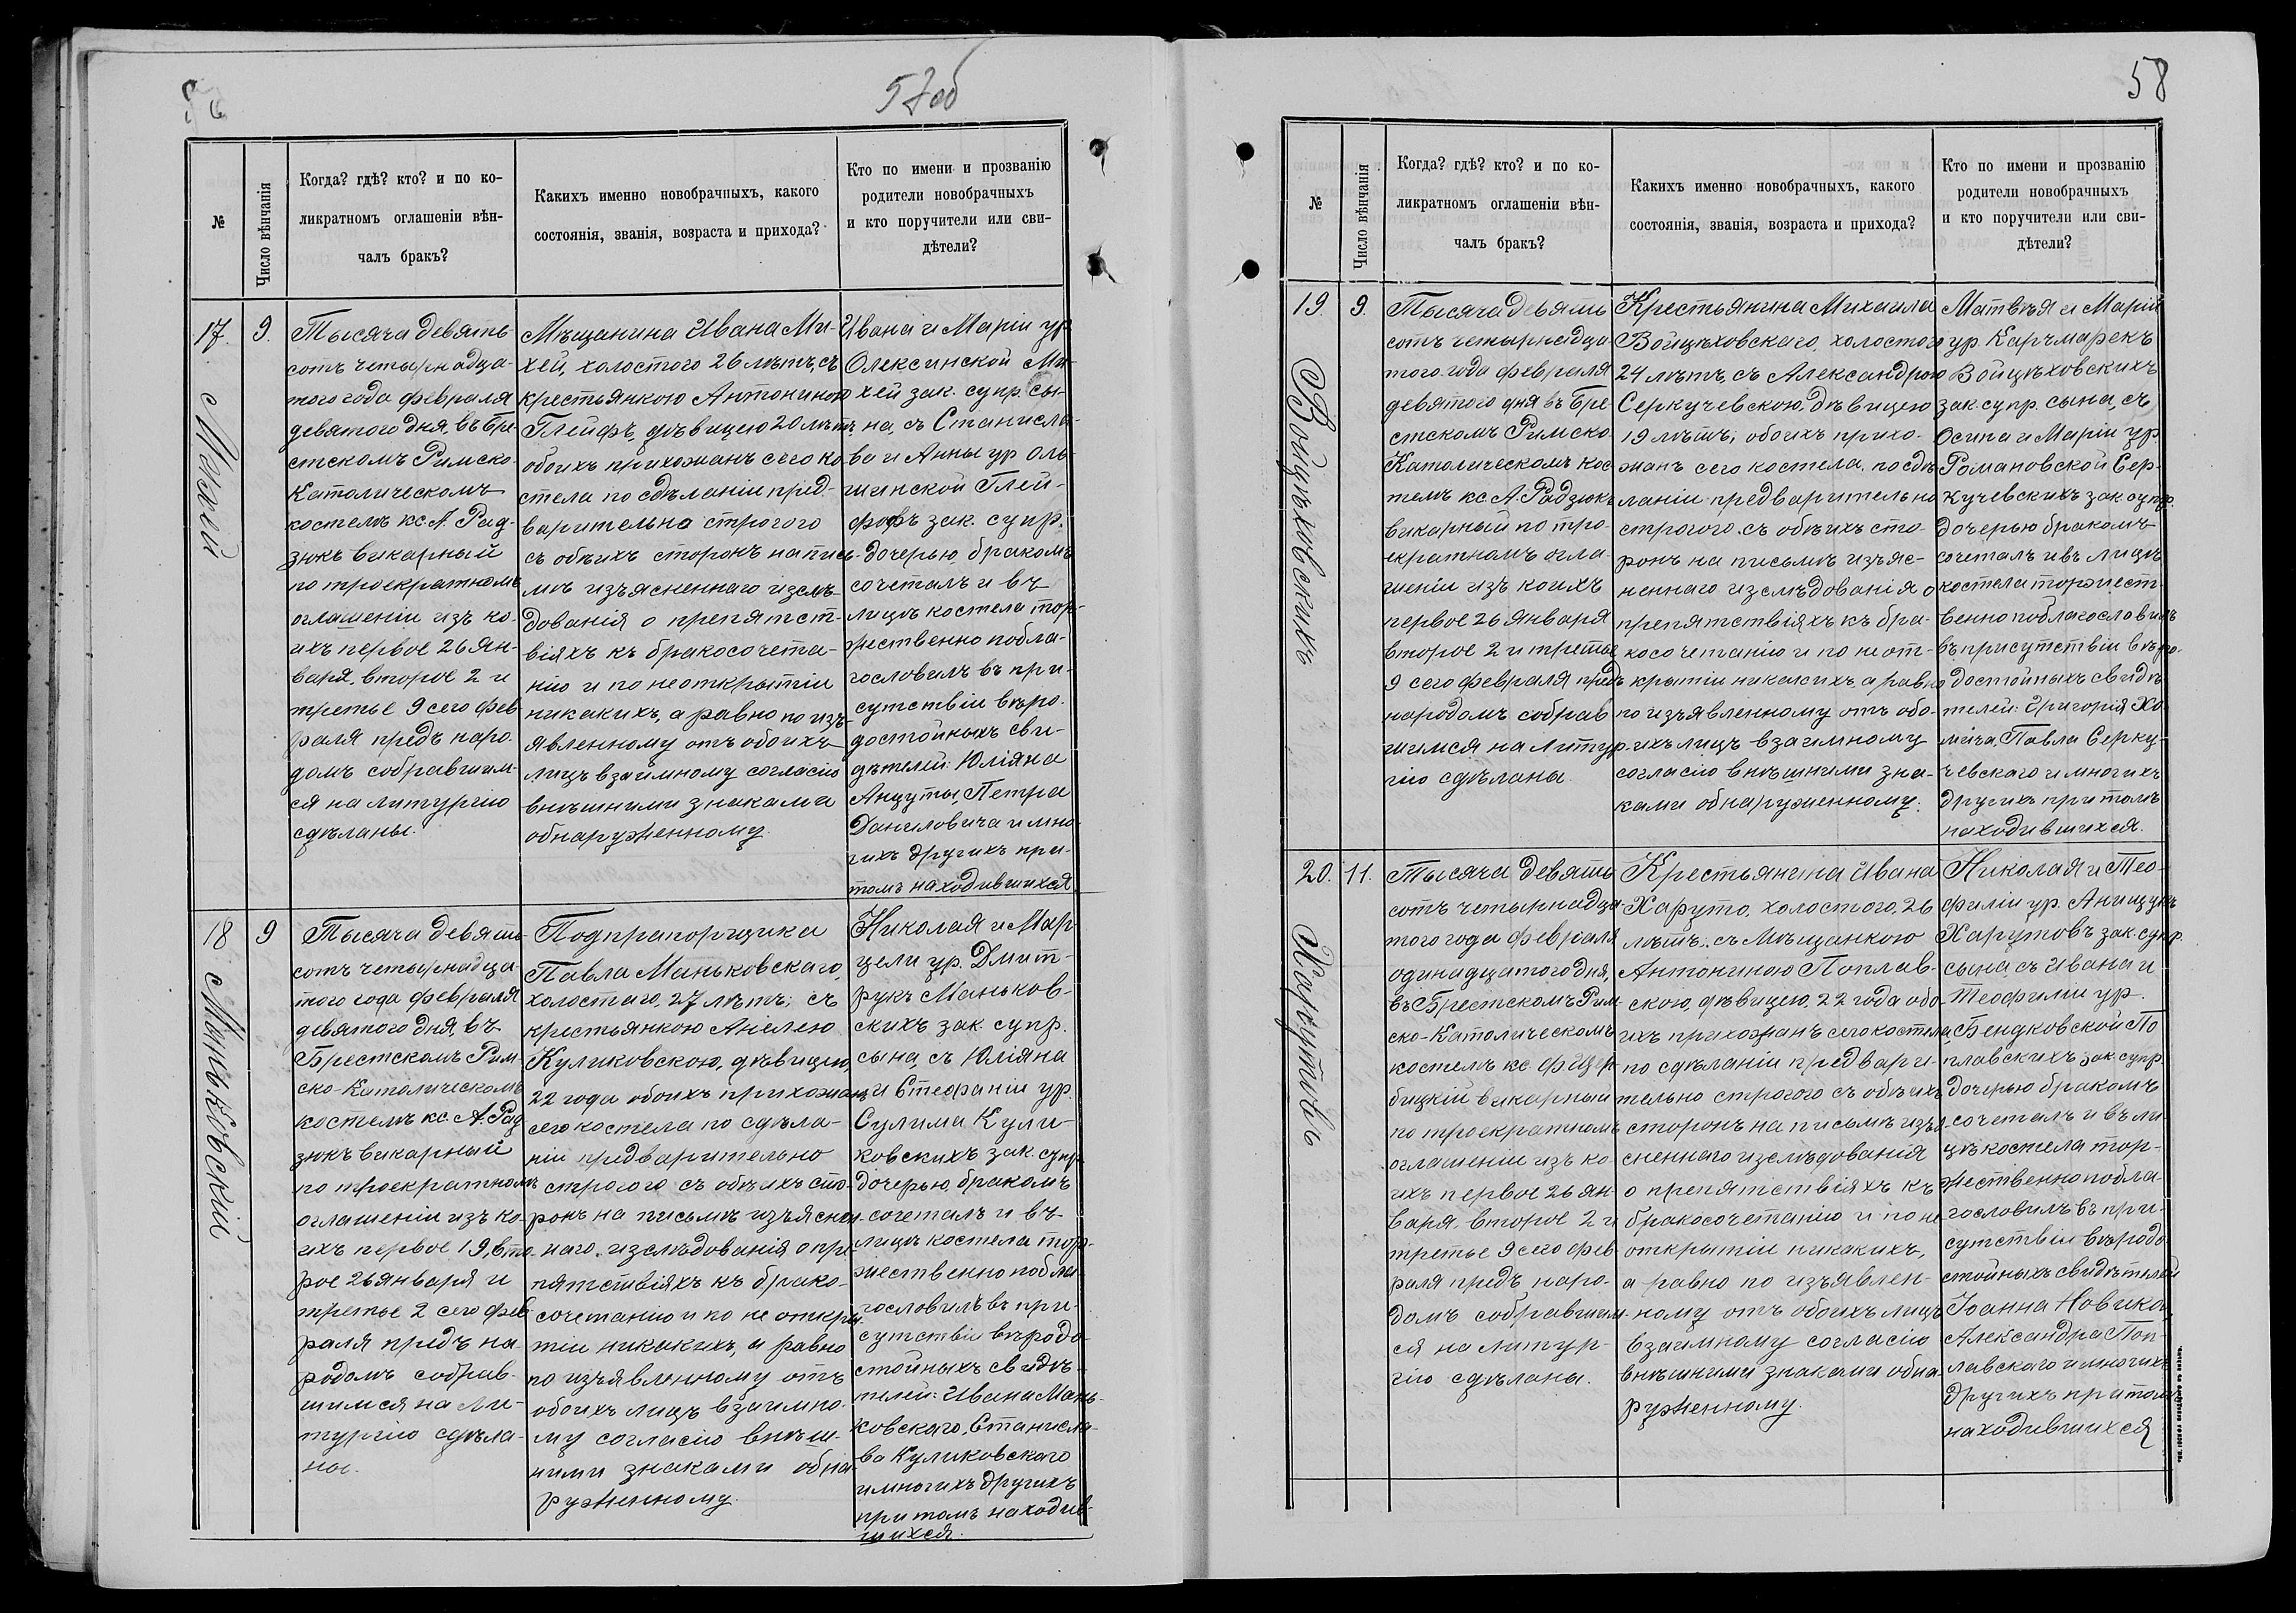 57об
№
Число вѣнчанія
Когда? гдѣ? кто? и по ко-
ликратномъ оглашеніи вѣн-
чалъ бракъ?
Какихъ именно новобрачныхъ, какого
состоянія, званія, возраста и прихода?
Кто по имени и прозванію
родители новобрачныхъ
и кто поручители или сви-
дѣтели?
17.
Михей
9.
Тысяча девять
сотъ четырнадца-
того года февраля
девятого дня, въ Бре-
стскомъ Римско-
Католическомъ
костелѣ кс А. Рад-
зюкъ викарный
по троекратномъ
оглашеніи изъ ко-
ихъ первое 26 Ян-
варя, второе 2 и
третье 9 сего фев
раля предъ наро-
домъ собравшим-
ся на литургію
сдѣланы.
Мѣщанина Ивана Ми-
хей, холостого 26 лѣтъ, съ
крестьянкою Антониною
Глейфъ, дѣвицею 20 лѣтъ,
обоихъ прихожанъ сего ко-
стела по сдѣланіи пред-
варительно строгого
съ обѣихъ сторонъ на пись-
мѣ изъясненнаго изслѣ-
дованія о препятст-
віяхъ къ бракосочета-
нію и по неоткрытіи
никакихъ, а равно по изъ-
явленному отъ обоихъ
лицъ взаимному согласію
внѣшними знаками
обнаруженному.
Ивана и Маріи ур.
Олексинской Ми-
хей зак. супр. сы-
на, съ Станисла-
ва и Анны ур Оль-
шанской Глей-
фофъ зак. супр.
дочерью, бракомъ
сочеталъ и въ
лицѣ костела тор-
жественно побла-
гословилъ въ при-
сутствіи вѣро-
достойныхъ сви-
дѣтелей: Юліяна
Анцуты, Петра
Даниловича и мно-
гихъ другихъ при-
томъ находившихся
18
Маньковскій
9
Тысяча девять
сотъ четырнадца-
того года февраля
девятого дня, въ
Брестскомъ Рим-
ско-Католическомъ
костелѣ кс. А. Рад
зюкъ викарный
по троекратномъ
оглашеніи изъ ко-
ихъ первое 19, вто-
рое 26 января и
третье 2 сего фев
раля предъ на-
родомъ собрав-
шимся на Ли-
тургію сдѣла-
ны.
Подпрапорщика
Павла Маньковскаго,
холостаго, 27 лѣтъ, съ
крестьянкою Аніелею
Куликовскою, дѣвицею,
22 года обоихъ прихожанъ
сего костела по сдѣла-
ніи предварительно
строгого съ обѣихъ сто-
ронъ на письмѣ изъяснен-
наго изслѣдованія о пре-
пятствіяхъ къ брако-
сочетанію и по не откры-
тіи никакихъ, а равно
по изъявленному отъ
обоихъ лицъ взаимно-
му согласію внѣш-
ними знаками обна-
руженному.
Николая и Мар-
цели ур. Дмит-
рукъ Маньков-
скихъ зак. супр.
сына, съ Юліяна
и Стефаніи ур.
Сулима Кули-
ковскихъ зак. супр.
дочерью, бракомъ
сочеталъ и въ
лицѣ костела тор-
жественно побла-
гословилъ въ при-
сутствіи вѣродо-
стойныхъ свидѣ-
телей: Ивана Мань-
ковскаго, Станисла-
ва Куликовскаго
и многихъ другихъ
притомъ находив-
шихся.
58
№
Число вѣнчанія
Когда? гдѣ? кто? и по ко-
ликратномъ оглашеніи вѣн-
чалъ бракъ?
Какихъ именно новобрачныхъ, какого
состоянія, званія, возраста и прихода?
Кто по имени и прозванію
родители новобрачныхъ
и кто поручители или сви-
дѣтели?
19
Войцѣховскихъ
9.
Тысяча девять
сотъ четырнадца
того года февраля
девятого дня въ Бре
стскомъ Римско-
Католическомъ кос
телѣ кс А. Радзюкъ
викарный по тро-
екратномъ огла-
шеніи изъ коихъ
первое 26 Января
второе 2 и третье
9 сего февраля предъ
народомъ собрав
шимся на Литур-
гію сдѣлана.
Крестьянина Михаила
Войцѣховскаго, холостого
24 лѣтъ, съ Александрою
Серкучевскою, дѣвицею
19 лѣтъ, обоихъ прихо-
жанъ сего костела, по сдѣ-
ланіи предварительно
строгого съ обѣихъ сто-
ронъ на письмѣ изъяс-
неннаго изслѣдованія о
препятствіяхъ къ бра-
косочетанію и по не от-
крытіи никакихъ, а равно
по изъявленному отъ обо-
ихъ лицъ взаимному
согласію внѣшними зна-
ками обнаруженному.
Матвѣя и Маріи
ур Карчмарекъ
Войцѣховскихъ
зак. супр. сына, съ
Осипа и Маріи ур.
Романовской Сер-
кучевскихъ зак супр.
дочерью бракомъ
сочеталъ и въ лицѣ
костела торжест-
венно поблагословилъ
въ присутствіи вѣро-
достойныхъ свидѣ
телей: Григорія Хо
мича, Павла Серку-
чевскаго и многихъ
другихъ притомъ
находившихся.
20.
Харутовъ
11.
Тысяча девять
сотъ четырнадца-
того года февраля
одинадцатого дня,
въ Брестскомъ Рим
ско-Католическомъ
костелѣ кс.
бицкій викарный
по троекратномъ
оглашеніи изъ ко
ихъ первое 26 ян-
варя, второе 2 и
третье 9 сего фев
раля предъ наро-
домъ собравшим-
ся на литур-
гію сдѣланы.
Крестьянина Ивана
Харуто, холостого, 26
лѣтъ, съ Мѣщанкою
Антониною Поплав-
скою, дѣвицею, 22 года обо-
ихъ прихожанъ сего костела
по сдѣланіи предвари-
тельно строгого съ обѣихъ
сторонъ на письмѣ изъя-
сненнаго изслѣдованія
о препятствіяхъ къ
бракосочетанію и по не
открытіи никакихъ,
а равно по изъявлен-
ному отъ обоихъ лицъ
взаимному согласію
внѣшними знаками обна-
руженному.
Николая и Тео-
филіи ур.
Харутовъ зак. супр.
сына, съ Ивана и
Теофили ур.
Бендковской По
плавскихъ зак супр.
дочерью бракомъ
сочеталъ и въ ли-
цѣ костела тор-
жественно побла-
гословилъ въ при-
сутствіи вѣродо-
стойныхъ свидѣтелей
Іоанна Новика,
Александра Поп-
лавскаго и многихъ
другихъ притомъ
находившихся